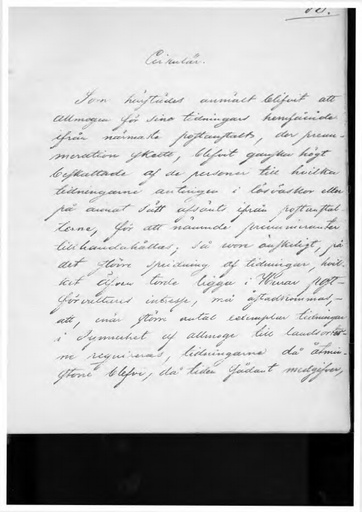 Cirkulär.
Som härstädes anmält blifvit att
allmogen för sina tidningars hemförande
ifrån närmaste postanstalt, der prenu-
meration skett, blifvit ganska högt
beskattade af de personer till hvilka
tidningarne antingen i lösväskor eller
på annat sätt afsänts ifrån postanstal-
terne, för att nämnde prenumeranter
tillhandahållas; så vore önskeligt, på
det större spridning af tidningar, hvil-
ket äfven torde ligga i Herrar post-
förvalteres intresse, må åstadkommas,
att, enär större antal exemplar tidningar
i synnerhet af allmoge till landsorter-
ne requireras, tidningarne då åtmin-
stone blefve, då leden sådant medgifver,